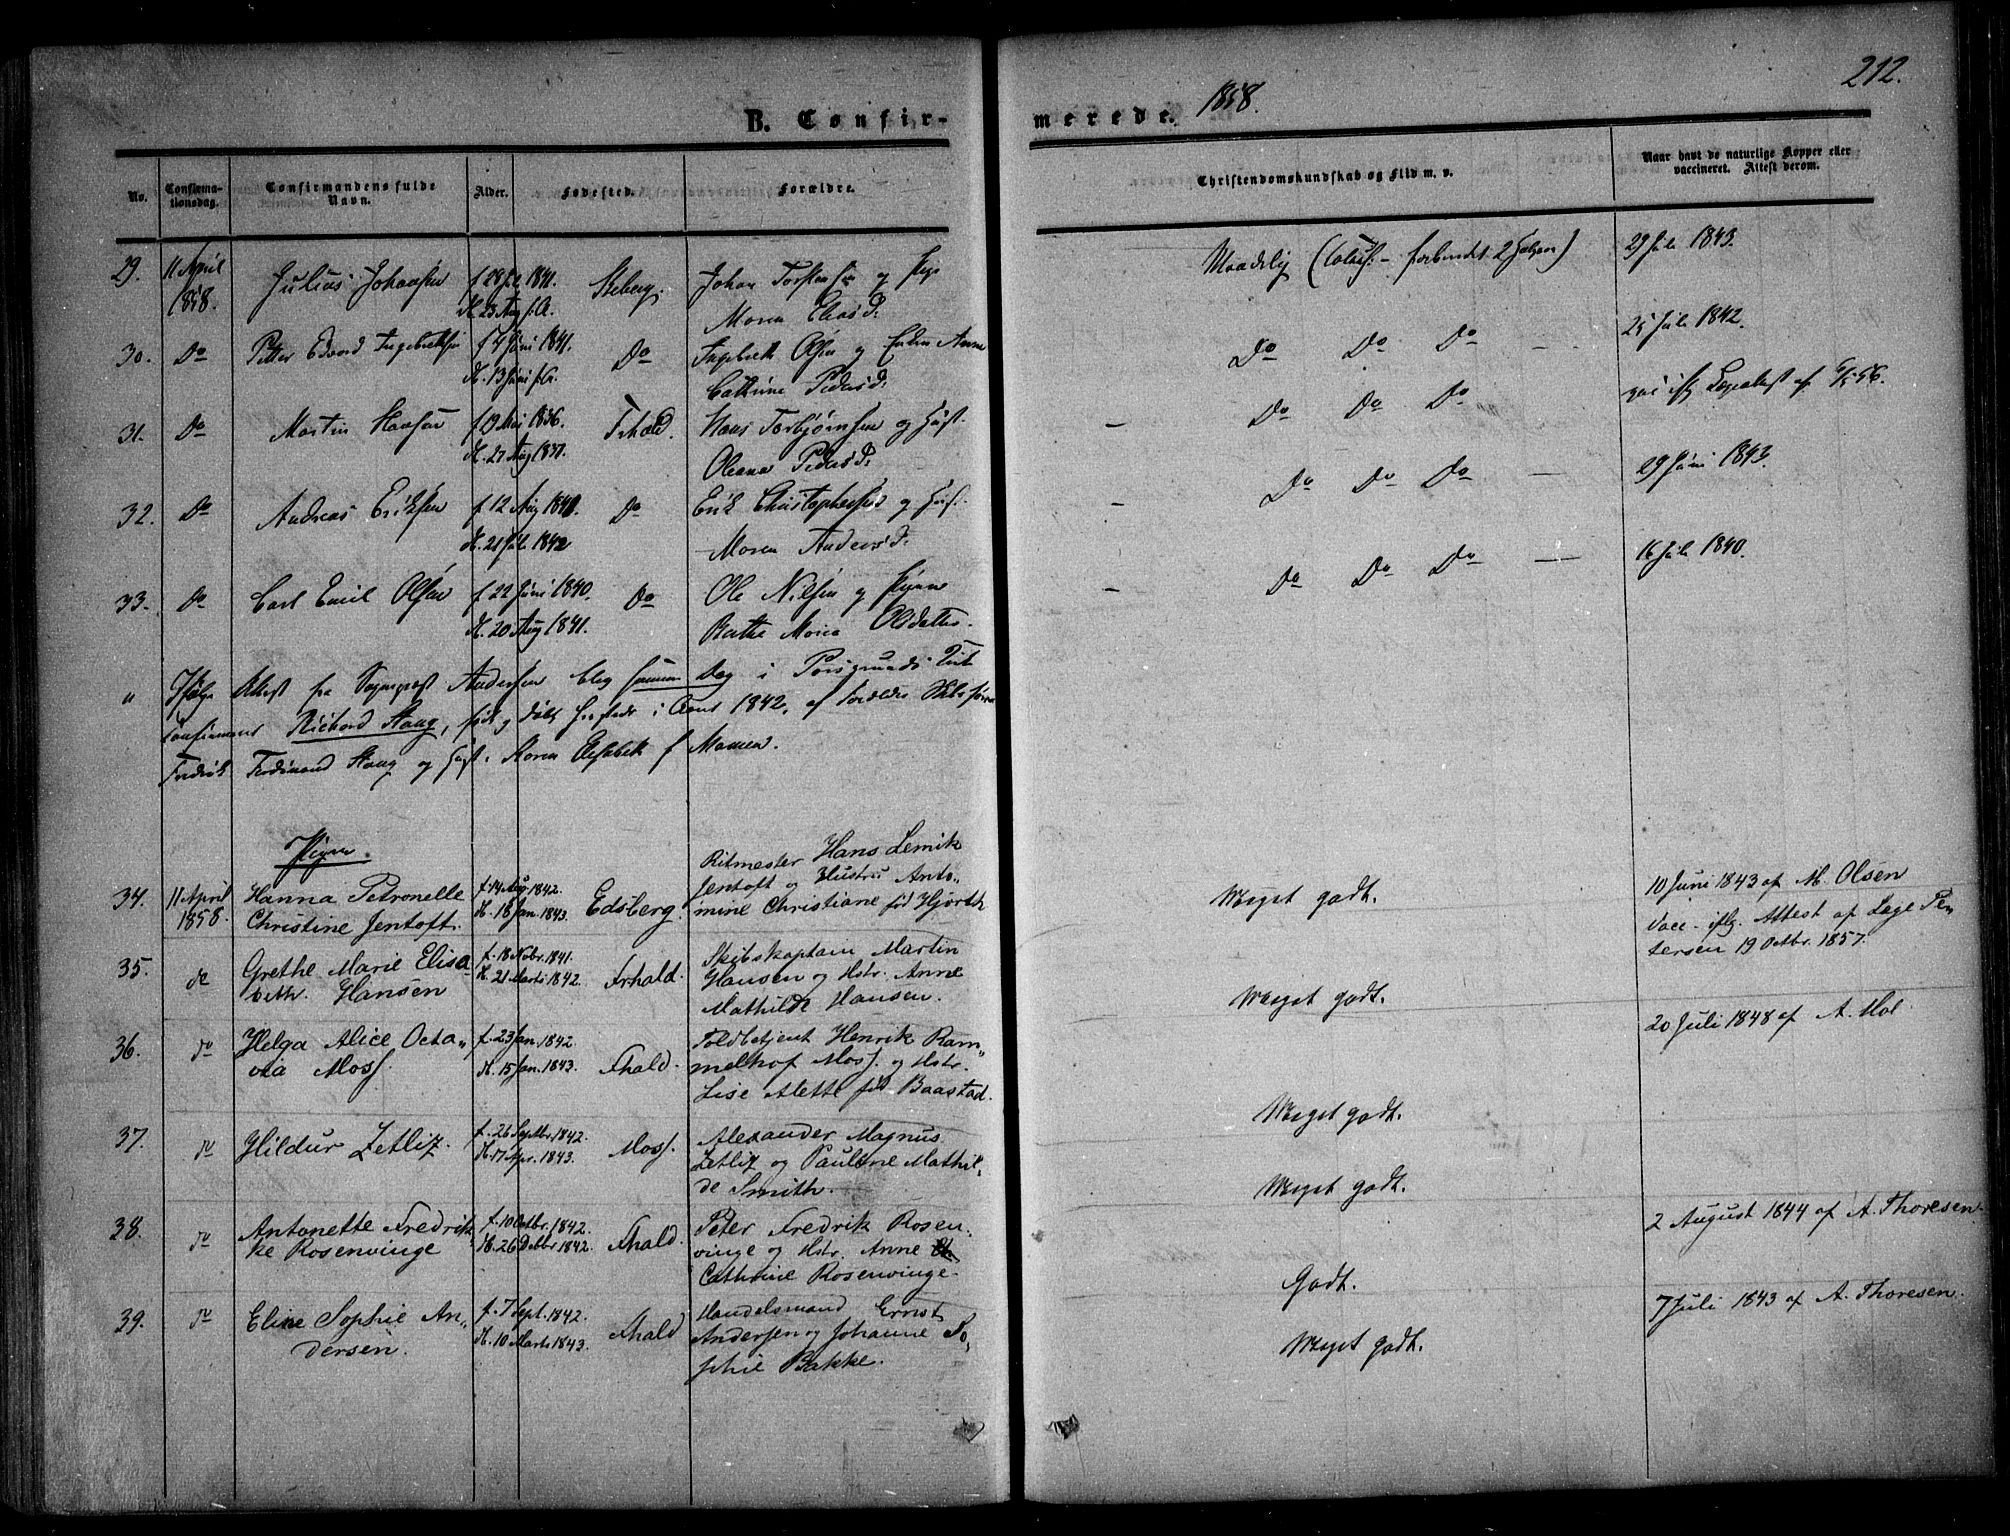 212.
B. Confir-
merede. 1858.
No.
Confirma-
tionsdag.
Confirmandens fulde
Navn.
Alder.
Fødested.
Forældre.
Christendomskundskab og Flid m. v.
Naar havt de naturlige Kopper eller
vaccineret. Attest derom.
29. 11 April
1858.
Julius Johansen
1841.
Johan og Pige
Maren
Maadelig
29 Juli 1843.
30. Do Petter Edvard
f 4 Juni 1841.
13 Juni
Do
Olsen og Anne
Cathrine Pedersd.
Do Do Do
25 Juli 1842.
31. Do Martin Hansen
f 19 Mai 1836.
27 Aug 1837.
Frhald.
Hans Torbjørnsen og Hust.
Oleana Pedersd.
Do Do Do
32. Do Andreas Eriksen
f 12 Aug
21 Juli 1842
Do
Erik Christophersen og Hust.
Maren Andersd.
Do Do Do
29 Juni 1843.
33. Do Carl Emil Olsen
f 22 Juni 1840.
20 Aug 1841.
Do
Ole Nilsen og
Maria Olsdatter.
Do Do Do
16 Juli 1840.
" Ifølge Attest fra Sognepræst Andersen blev samme Dag i Porsgrund
Richard Haug, født og døbt i Aaret 1842, af Forældre
Fredrik Ferdinand Haug og Hust. Maren Elisabeth f
Piger.
34. 11 April
1858.
Hanna Petronelle
Christine Jentoft.
f. 14 Aug. 1842.
H. 18 Jan. 1843.
Edsberg.
Ritmester Hans Lemik
Jentoft og Hustru Anto-
mine Christiane fød Hjorth
Meget godt.
10 Juni 1843 af M. Olsen
35. do Grethe Marie Elisa
beth. Hansen
f. 18 Nobr. 1841.
H. 21 Marts 1842.
Frhald.
Skibskaptain Martin
Hansen og Hstr. Anne
Mathilde Hansen.
Meget godt.
Vacc. iflg. Attest af Læge Pe
tersen 19 Octbr. 1857.
36. do Helga Alice Octa„
via Moss.
f. 23 Jan. 1842.
H. 15 Jan. 1843.
Fhald.
Toldbetjent Henrik Ram„
melhof Moss. og Hstr.
Lise Alette fød Baastad.
Meget godt.
20 Juli 1848 af A. Moe
37. do Hildur Zetliz.
f. 26 Septbr. 1842.
H. 17 Apr. 1843.
Moss.
Alexander Magnus
Zetliz og Pauline Mathil-
de Smith.
Meget godt.
38. do Antonette Fredrik
ke Rosenvinge
f. 10 Octbr. 1842.
H. 26 Decbr 1842.
Fhald.
Peter Fredrik Rosen.
vinge og Hstr. Anne
Cathrine Rosenvinge.
Godt.
2 August 1844 af A. Thoresen
39. do Eline Sophie An„
dersen.
f. 7 Sept. 1842.
H. 10 Marts 1843.
Fhald
Handelsmand Ernst
Andersen og Johanne So„
phie Bakke.
Meget godt.
7 Juli 1843 af A. Thoresen.